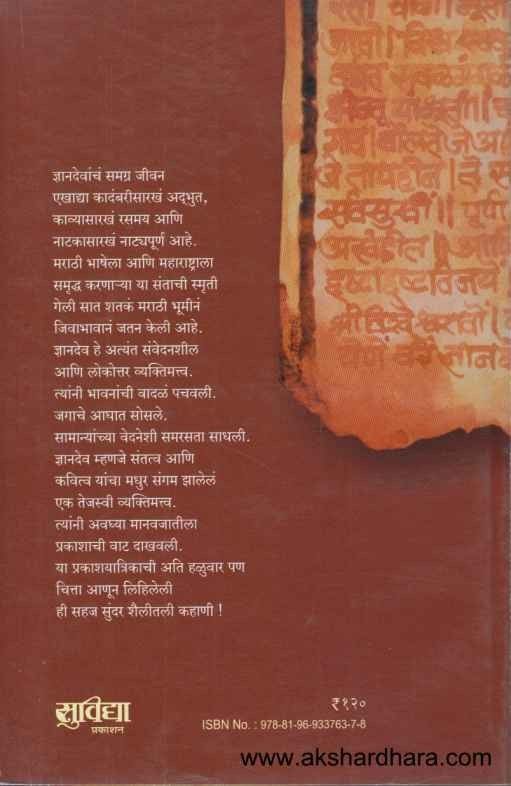 ज्ञानदेवांचं समग्र जीवन
एखाद्या कादंबरीसारखं अद्‌भुत,
काव्यासारखं रसमय आणि
नाटकासारखं नाट्यपूर्ण आहे.
मराठी भाषेला आणि महाराष्ट्राला
समृद्ध करणाऱ्या या संताची स्मृती
गेली सात शतकं मराठी भूमीनं
जिवाभावानं जतन केली आहे.
ज्ञानदेव हे अत्यंत संवेदनशील
आणि लोकोत्तर व्यक्तिमत्त्व.
त्यांनी भावनांची वादळं पचवली.
जगाचे आघात सोसले.
सामान्यांच्या वेदनेशी समरसता साधली.
ज्ञानदेव म्हणजे संतत्व आणि
कवित्व यांचा मधुर संगम झालेलं
एक तेजस्वी व्यक्तिमत्त्व.
त्यांनी अवघ्या मानवजातीला
प्रकाशाची वाट दाखवली.
या प्रकाशयात्रिकाची अति हळुवार पण
चित्ता आणून लिहिलेली
ही सहज सुंदर शैलीतली कहाणी !
सुविद्या
प्रकाशन
₹१२०
ISBN No. : 978-81-96-933763-7-8
www.akshardhara.com